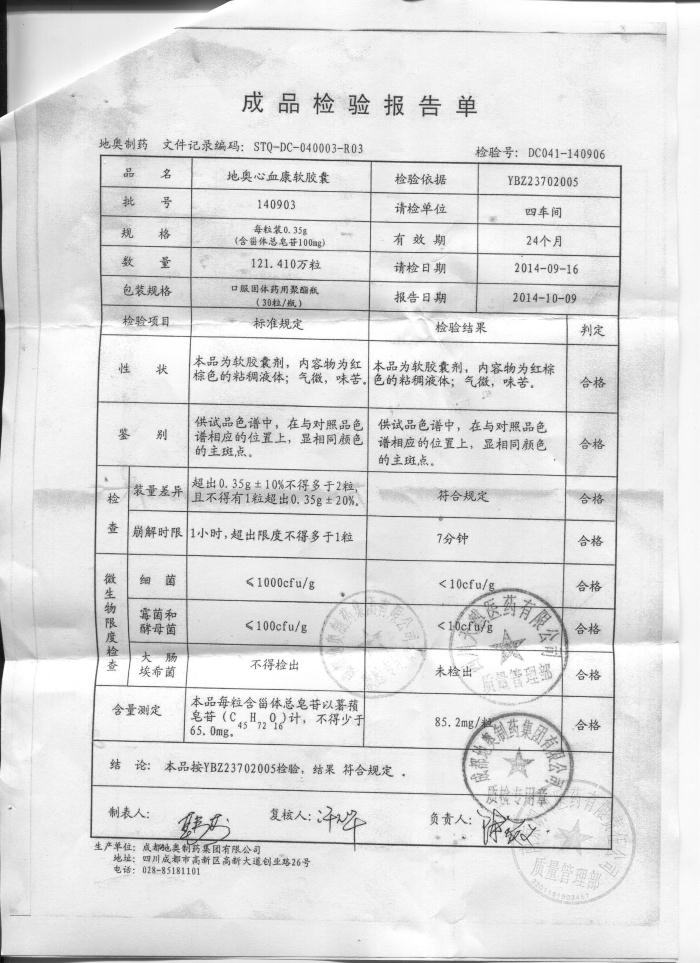 成品检验报告单
地奥制药 文件记录编码: STQ-DC-040003-R03 检验号: DC041-140906
品 名 地奥心血康软胶囊 检验依据 YBZ23702005
批 号 140903 请检单位 四车间
规 格 每粒装0.35g 有 效 期 24个月
(含甾体总皂苷100mg)
数 量 121.410万粒 请检日期 2014-09-16
包装规格 口服固体药用聚酯瓶 报告日期 2014-10-09
(30粒/瓶)
检验项目 标准规定 检验结果 判定
性 状 本品为软胶囊剂，内容物为红 本品为软胶囊剂，内容物为红 合格
棕色的粘稠液体；气微，味苦。 色的粘稠液体；气微，味苦。
鉴 别 供试品色谱中，在与对照品色 供试品色谱中，在与对照品色 合格
谱相应的位置上，显相同颜色 谱相应的位置上，显相同颜色
的主斑点。 的主斑点。
检 查
装量差异 超出0.35g±10%不得多于2粒， 符合规定 合格
且不得有1粒超出0.35g±20%。
崩解时限 1小时，超出限度不得多于1粒 7分钟 合格
微生物限度检查
细 菌 ≤1000cfu/g <10cfu/g 合格
霉菌和 ≤100cfu/g <10cfu/g 合格
酵母菌
大 肠 不得检出 未检出 合格
埃希菌
含量测定 本品每粒含甾体总皂苷以薯蓣 85.2mg/粒 合格
皂苷(C45H72O16)计，不得少于
65.0mg。
结 论: 本品按YBZ23702005检验，结果 符合规定 .
制表人: 复核人: 负责人:
生产单位: 成都地奥制药集团有限公司
地址: 四川成都市高新区高新大道创业路26号
电话: 028-85181101
成都地奥制药集团有限公司
质检专用章
质量管理部
质量管理部